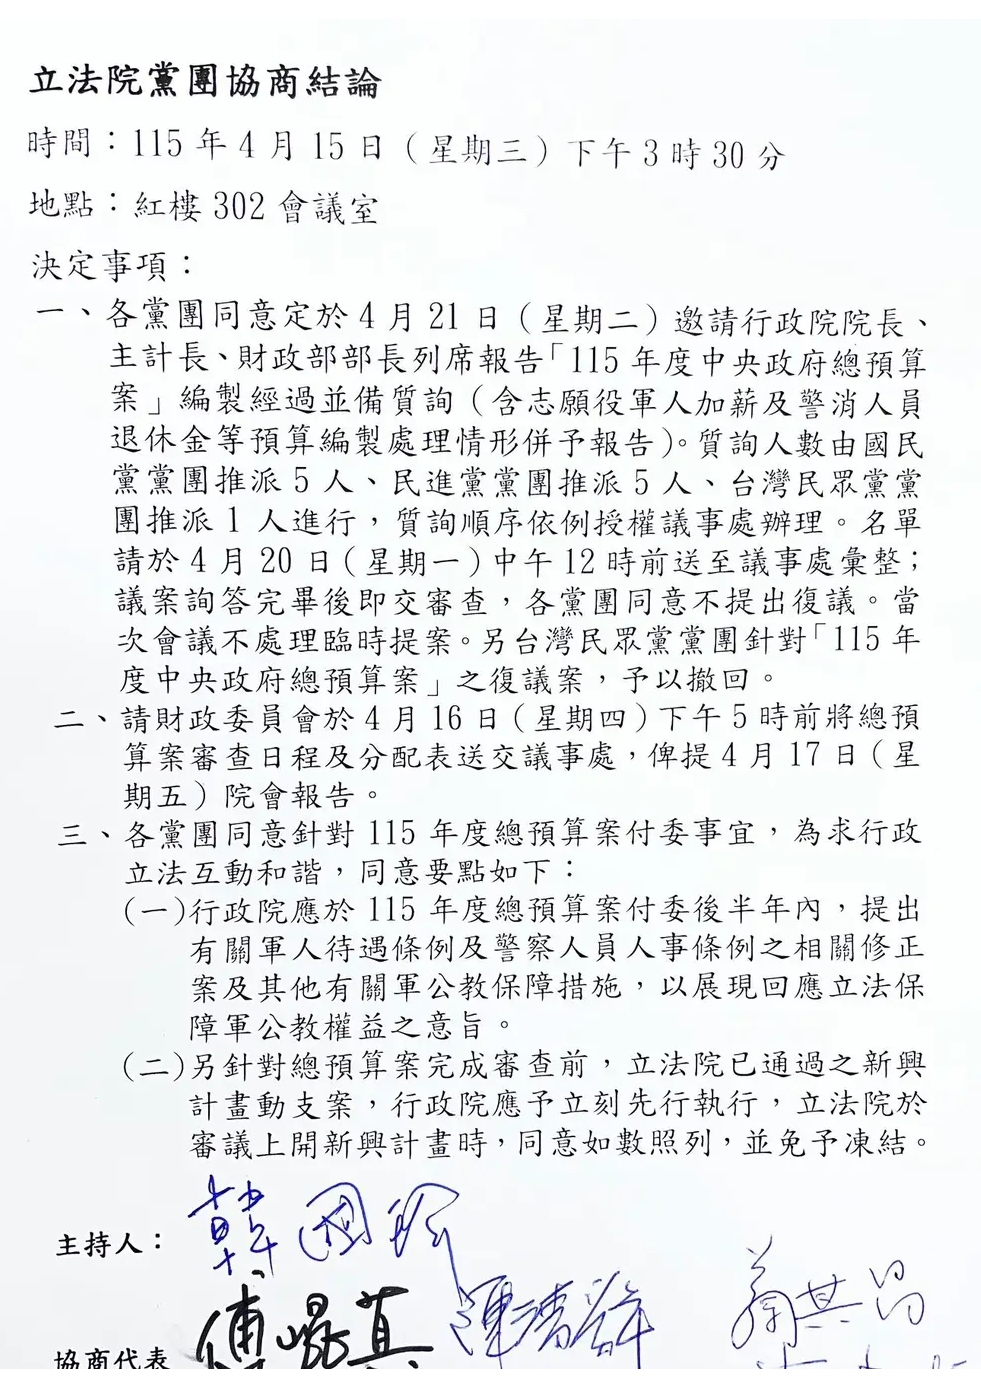 立法院黨團協商結論
時間：115 年 4 月 15 日（星期三）下午 3 時 30 分
地點：紅樓 302 會議室
決定事項：
一、各黨團同意定於 4 月 21 日（星期二）邀請行政院院長、
主計長、財政部部長列席報告「115 年度中央政府總預算
案」編製經過並備質詢（含志願役軍人加薪及警消人員
退休金等預算編製處理情形併予報告）。質詢人數由國民
黨黨團推派 5 人、民進黨黨團推派 5 人、台灣民眾黨黨
團推派 1 人進行，質詢順序依例授權議事處辦理。名單
請於 4 月 20 日（星期一）中午 12 時前送至議事處彙整；
議案詢答完畢後即交審查，各黨團同意不提出復議。當
次會議不處理臨時提案。另台灣民眾黨黨團針對「115 年
度中央政府總預算案」之復議案，予以撤回。
二、請財政委員會於 4 月 16 日（星期四）下午 5 時前將總預
算案審查日程及分配表送交議事處，俾提 4 月 17 日（星
期五）院會報告。
三、各黨團同意針對 115 年度總預算案付委事宜，為求行政
立法互動和諧，同意要點如下：
（一）行政院應於 115 年度總預算案付委後半年內，提出
有關軍人待遇條例及警察人員人事條例之相關修正
案及其他有關軍公教保障措施，以展現回應立法保
障軍公教權益之意旨。
（二）另針對總預算案完成審查前，立法院已通過之新興
計畫動支案，行政院應予立刻先行執行，立法院於
審議上開新興計畫時，同意如數照列，並免予凍結。
主持人：韓國瑜
協商代表 傅崐萁 陳清龍 蔡其昌